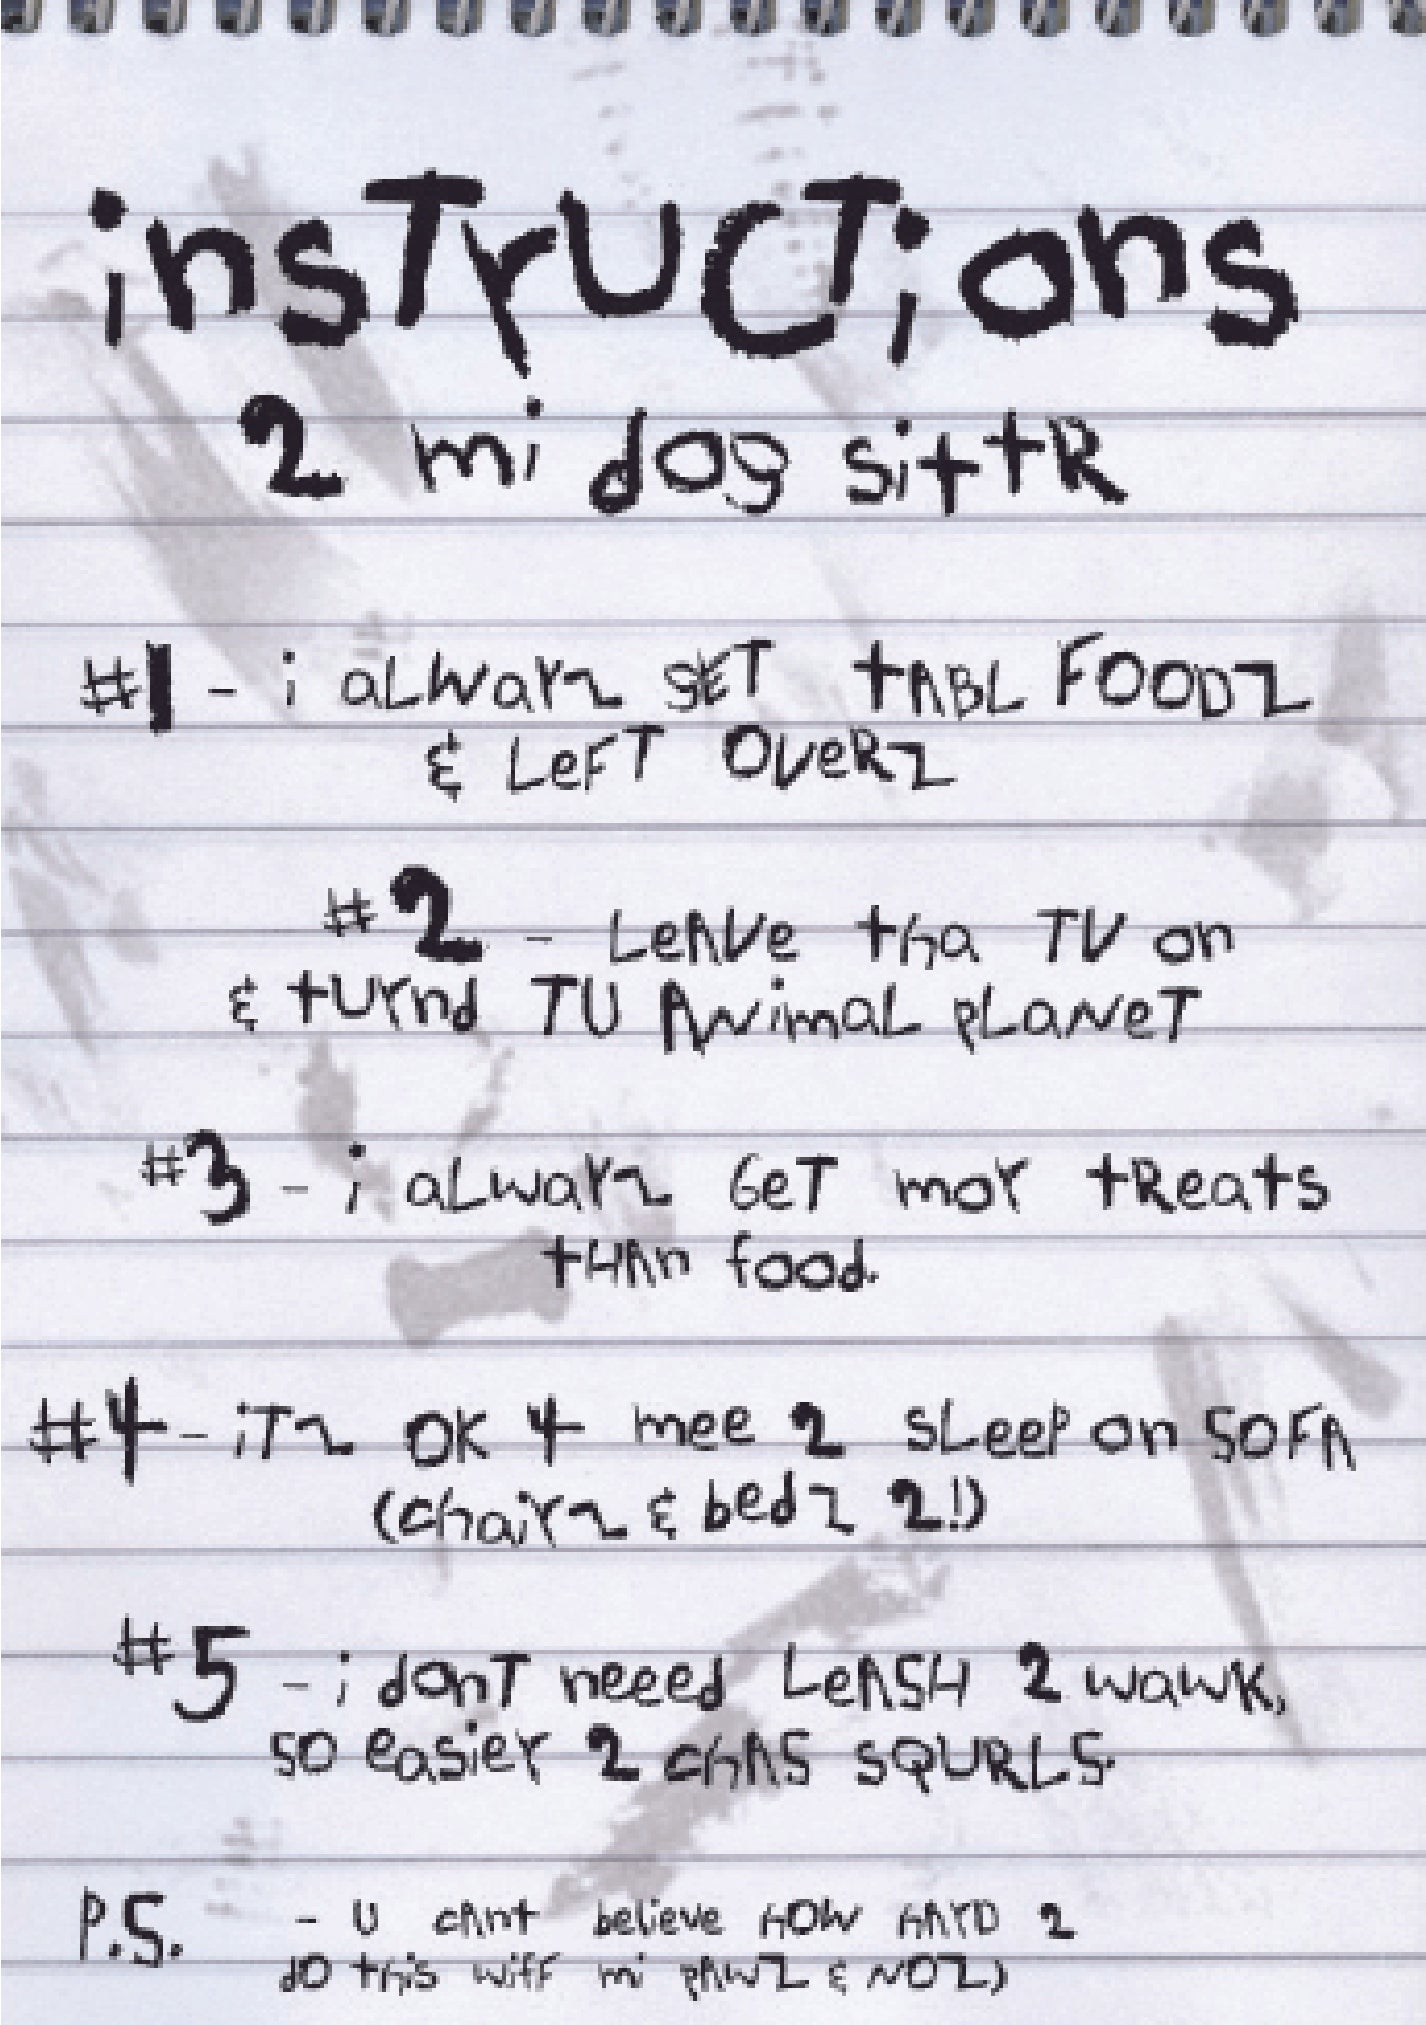 insTrUCTions
2 mi dog sittR
#1 - i aLWaYz gET tABL FOODZ
& LeFT OVeRZ
#2 - LeAVe tha TV on
& tUrnd TU ANimaL pLaNeT
#3 - i aLwaYz GeT moY tReats
tHAn food.
#4 - iTz OK 4 mee 2 sLeeP on SOFA
(chairz & bedz 2!)
#5 - i donT neeed LeASH 2 wawK,
so easier 2 chAS sQURLS.
P.S. - U cAnt believe hOW hAYD 2
dO this wiff mi pAWZ & NOZ)